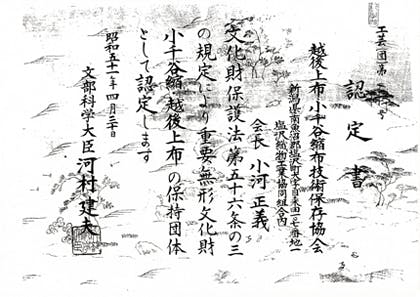 工芸団第一号
認定書
越後上布・小千谷縮布技術保存協会
新潟県南魚沼郡塩沢町大字目来田一〇七番地一
塩沢織物工業協同組合内
会長 小河正義
文化財保護法第五十六条の三
の規定により重要無形文化財
小千谷縮・越後上布の保持団体
として認定します
昭和五十一年四月三十日
文部科学大臣 河村建夫